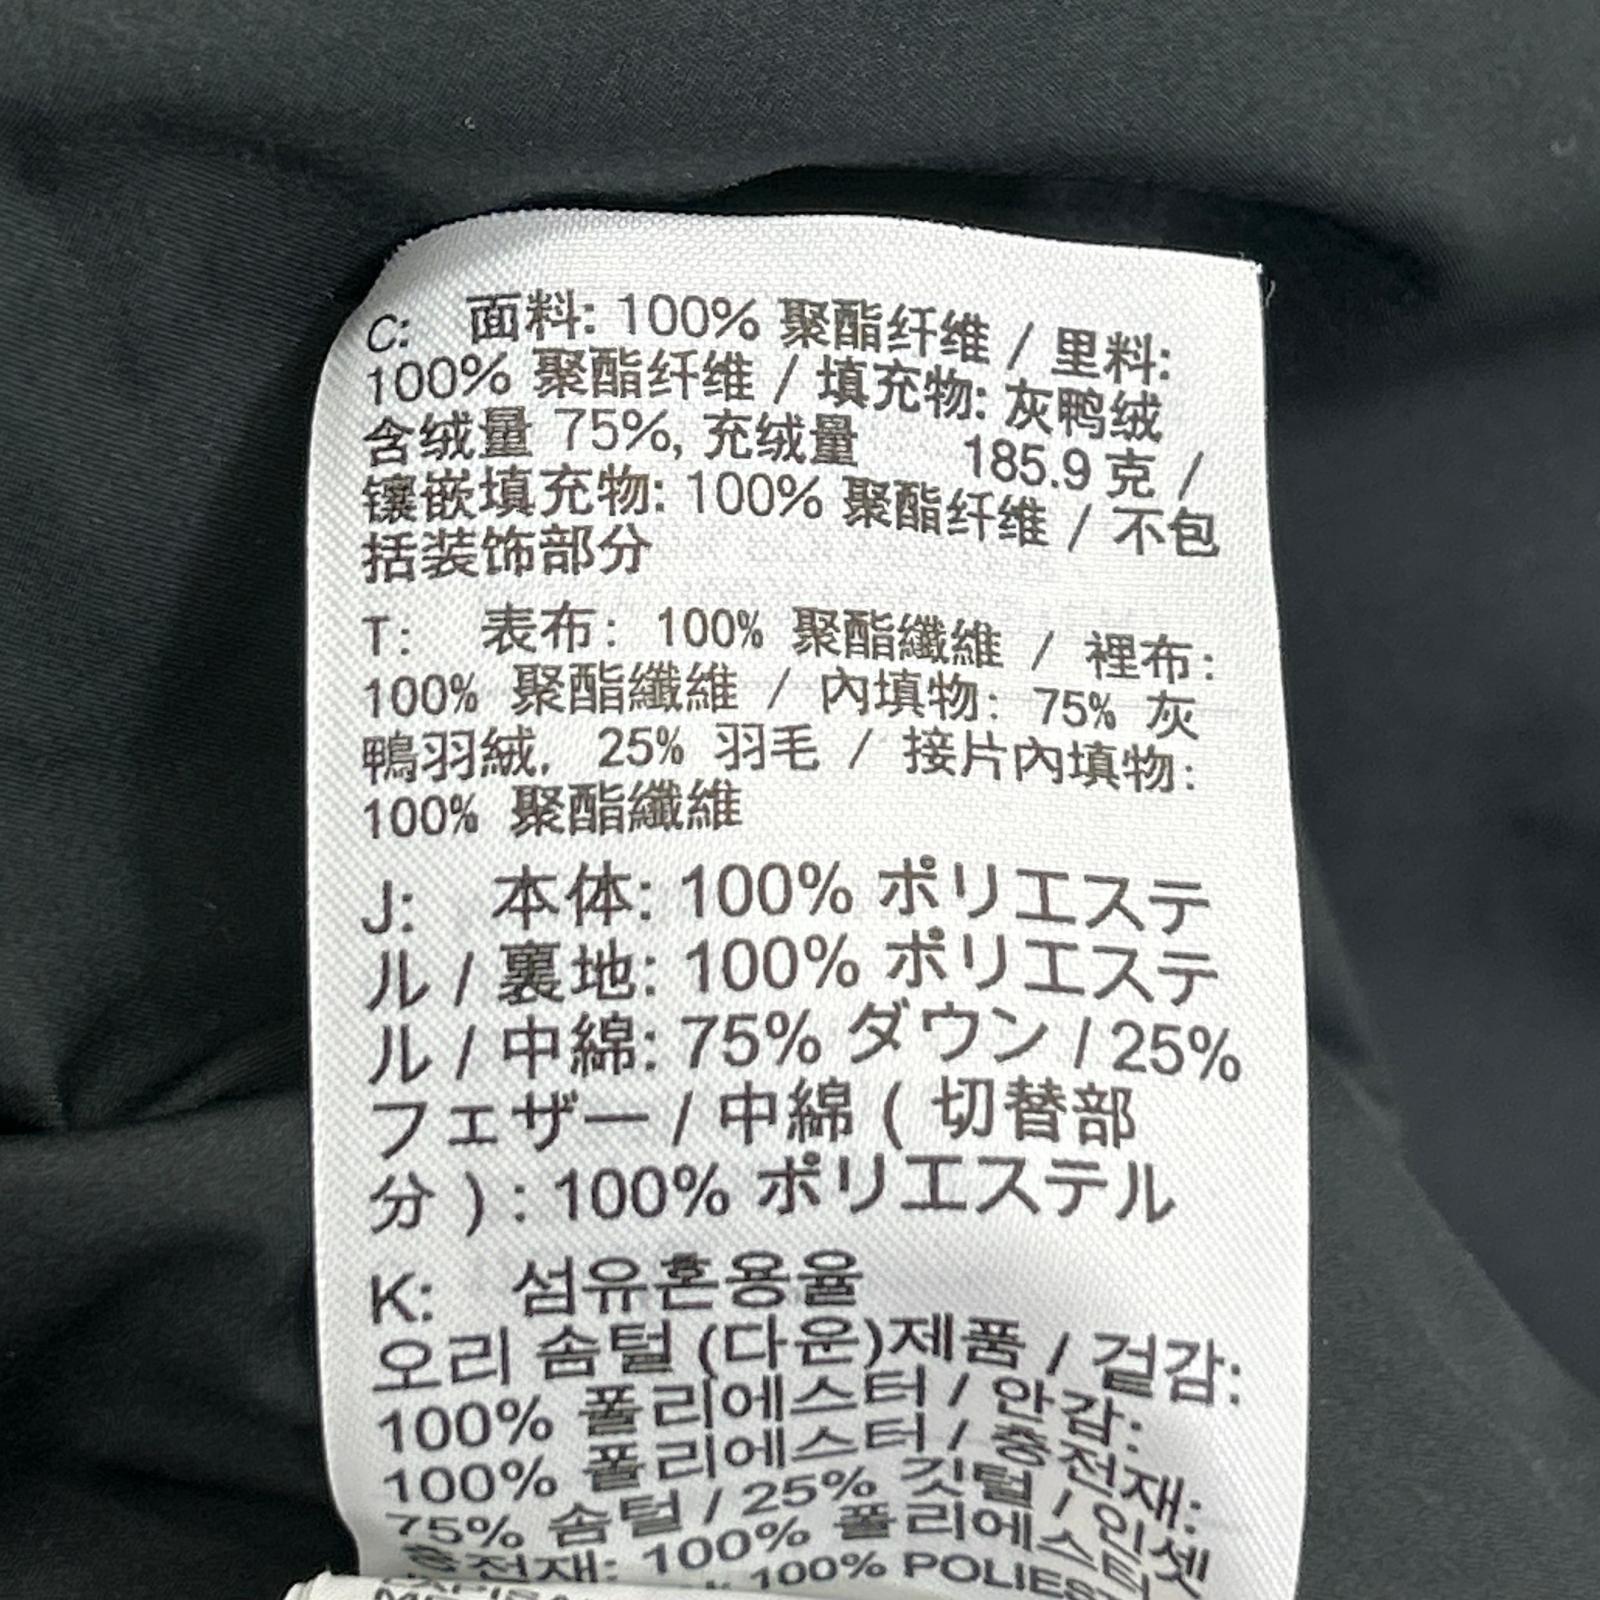 C: 面料: 100% 聚酯纤维 / 里料:
100% 聚酯纤维 / 填充物: 灰鸭绒
含绒量 75%, 充绒量 185.9 克 /
镶嵌填充物: 100% 聚酯纤维 / 不包
括装饰部分
T: 表布: 100% 聚酯纖維 / 裡布:
100% 聚酯纖維 / 內填物: 75% 灰
鴨羽絨, 25% 羽毛 / 接片內填物:
100% 聚酯纖維
J: 本体: 100% ポリエステ
ル / 裏地: 100% ポリエステ
ル / 中綿: 75% ダウン / 25%
フェザー / 中綿 ( 切替部
分 ) : 100% ポリエステル
K: 섬유혼용율
오리 솜털 (다운)제품 / 겉감:
100% 폴리에스터 / 안감:
100% 폴리에스터 / 충전재:
75% 솜털 / 25% 깃털 / 인셋
충전재: 100% 폴리에스터
100% POLIEST